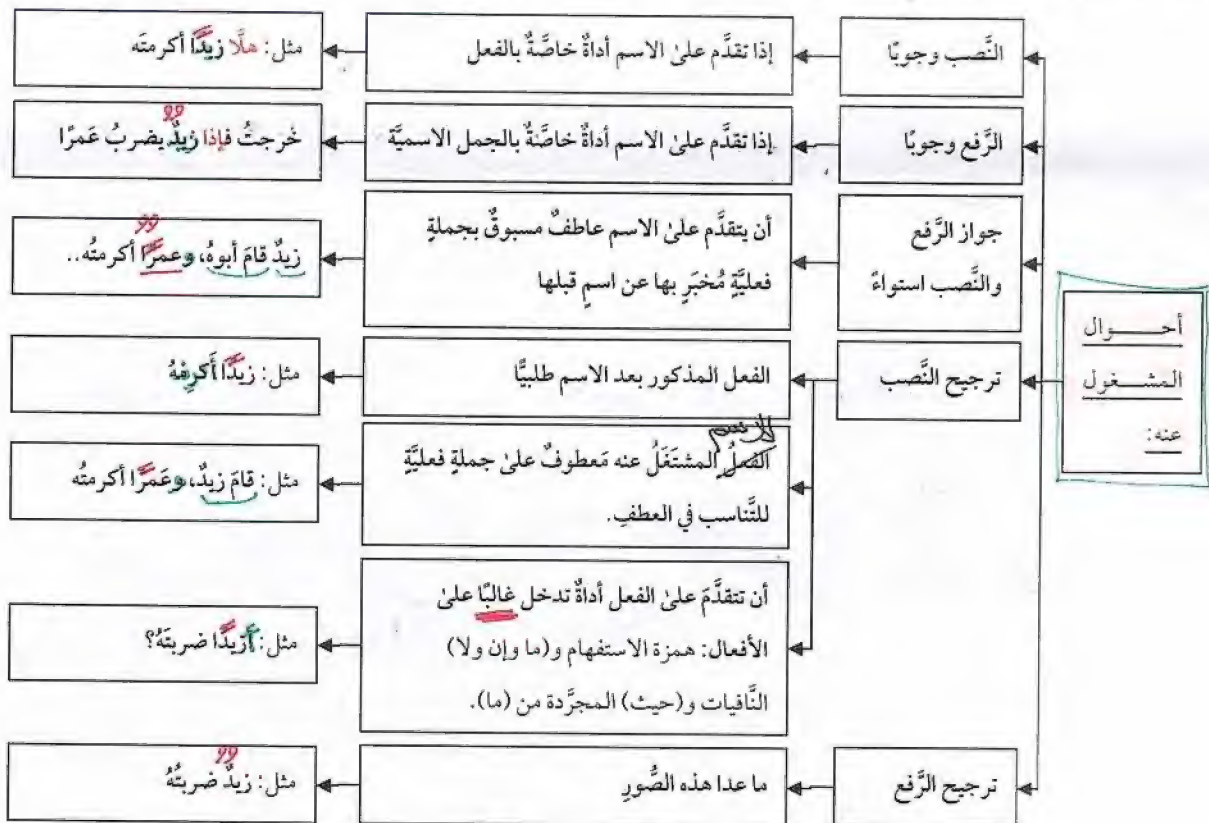 أحوال
المشغول
عنه:
النَّصب وجوبًا
إذا تقدَّم علىٰ الاسم أداةٌ خاصَّةٌ بالفعل
مثل: هلَّا زيدًا أكرمتَه
الرَّفع وجوبًا
إذا تقدَّم علىٰ الاسم أداةٌ خاصَّةٌ بالجمل الاسميَّة
خَرجتُ فإذا زيدٌ يضربُ عَمرًا
جواز الرَّفع
والنَّصب استواءً
أن يتقدَّم علىٰ الاسم عاطفٌ مسبوقٌ بجملةٍ
فعليَّةٍ مُخبَرٍ بها عن اسمٍ قبلها
زيدٌ قامَ أبوهُ، وعمرًا أكرمتُه..
ترجيح النَّصب
الفعل المذكور بعد الاسم طلبيًّا
مثل: زيدًا أَكرِمْهُ
الاسم
الفعلُ المشتَغَلُ عنه مَعطوفٌ علىٰ جملةٍ فعليَّةٍ
للتَّناسب في العطفِ.
مثل: قامَ زيدٌ، وعَمرًا أكرمتُه
أن تتقدَّمَ علىٰ الفعل أداةٌ تدخل غالبًا علىٰ
الأفعال: همزة الاستفهام و(ما وإن ولا)
النَّافيات و(حيث) المجرَّدة من (ما).
مثل: أزيدًا ضربتَهُ؟
ترجيح الرَّفع
ما عدا هذه الصُّورِ
مثل: زيدٌ ضربتُهُ